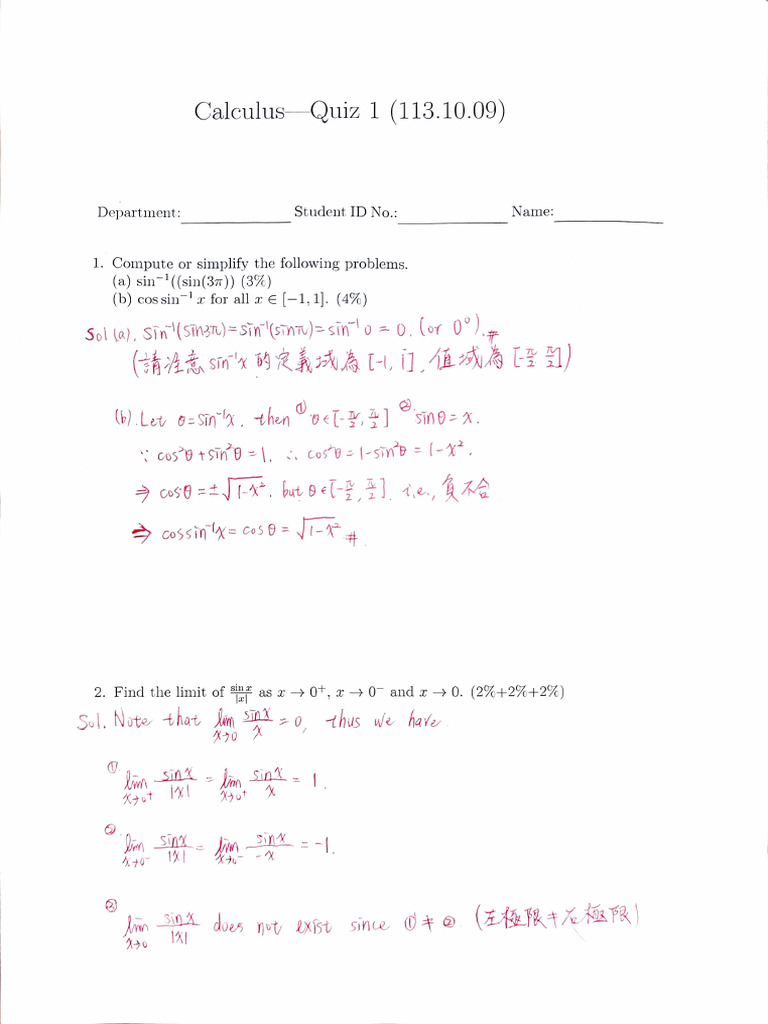 Calculus—Quiz 1 (113.10.09)
Department: Student ID No.: Name:
1. Compute or simplify the following problems.
(a) sin⁻¹((sin(3π)) (3%)
(b) cos sin⁻¹ x for all x ∈ [−1, 1]. (4%)
Sol (a). sin⁻¹(sin3π)=sin⁻¹(sinπ)=sin⁻¹ 0 = 0. (or 0°).#
(請注意 sin⁻¹x 的定義域為 [-1, 1], 值域為 [-π/2 π/2])
(b). Let θ=sin⁻¹x, then ① θ∈[-π/2, π/2] ② sinθ=x.
∵ cos²θ+sin²θ=1, ∴ cos²θ=1-sin²θ=1-x².
⇒ cosθ=±√(1-x²), but θ∈[-π/2, π/2]. i.e., 負不合
⇒ cossin⁻¹x=cosθ=√(1-x²) #
2. Find the limit of sin x/|x| as x → 0⁺, x → 0⁻ and x → 0. (2%+2%+2%)
Sol. Note that lim x→0 sinx/x = 0, thus we have
① lim x→0⁺ sinx/|x| = lim x→0⁺ sinx/x = 1.
② lim x→0⁻ sinx/|x| = lim x→0⁻ sinx/-x = -1.
③ lim x→0 sinx/|x| does not exist since ① ≠ ② (左極限≠右極限)